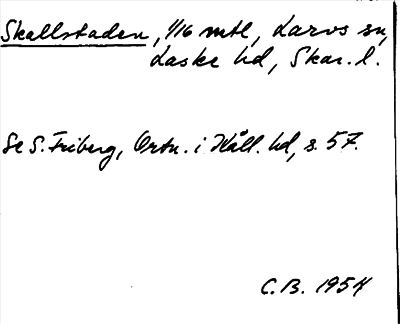 Skallstaden, 1/16 mtl, Larvs sn,
Laske hd, Skar. l.
Se S. Friberg, Ortn. i Käll. hd, s. 57.
C.B. 1954